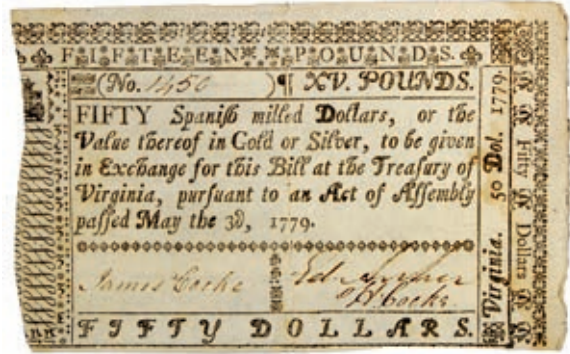 FIFTEEN POUNDS.
(No. 1450 )¶ XV. POUNDS.
FIFTY Spaniſh milled Dollars, or the
Value thereof in Gold or Silver, to be given
in Exchange for this Bill at the Treaſury of
Virginia, purſuant to an Act of Aſſembly
paſſed May the 3d, 1779.
James Cocke
Cocke
FIFTY DOLLARS.
Virginia. 50 Dol. 1779.
Fifty Dollars